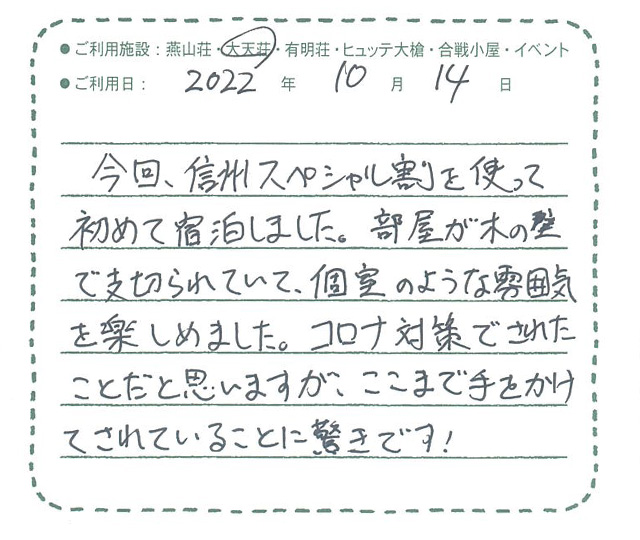 ●ご利用施設：燕山荘・大天荘・有明荘・ヒュッテ大槍・合戦小屋・イベント
●ご利用日： 2022 年 10 月 14 日
今回、信州スペシャル割を使って
初めて宿泊しました。部屋が木の壁
で支切られていて、個室のような雰囲気
を楽しめました。コロナ対策でされた
ことだと思いますが、ここまで手をかけ
てされていることに驚きです!